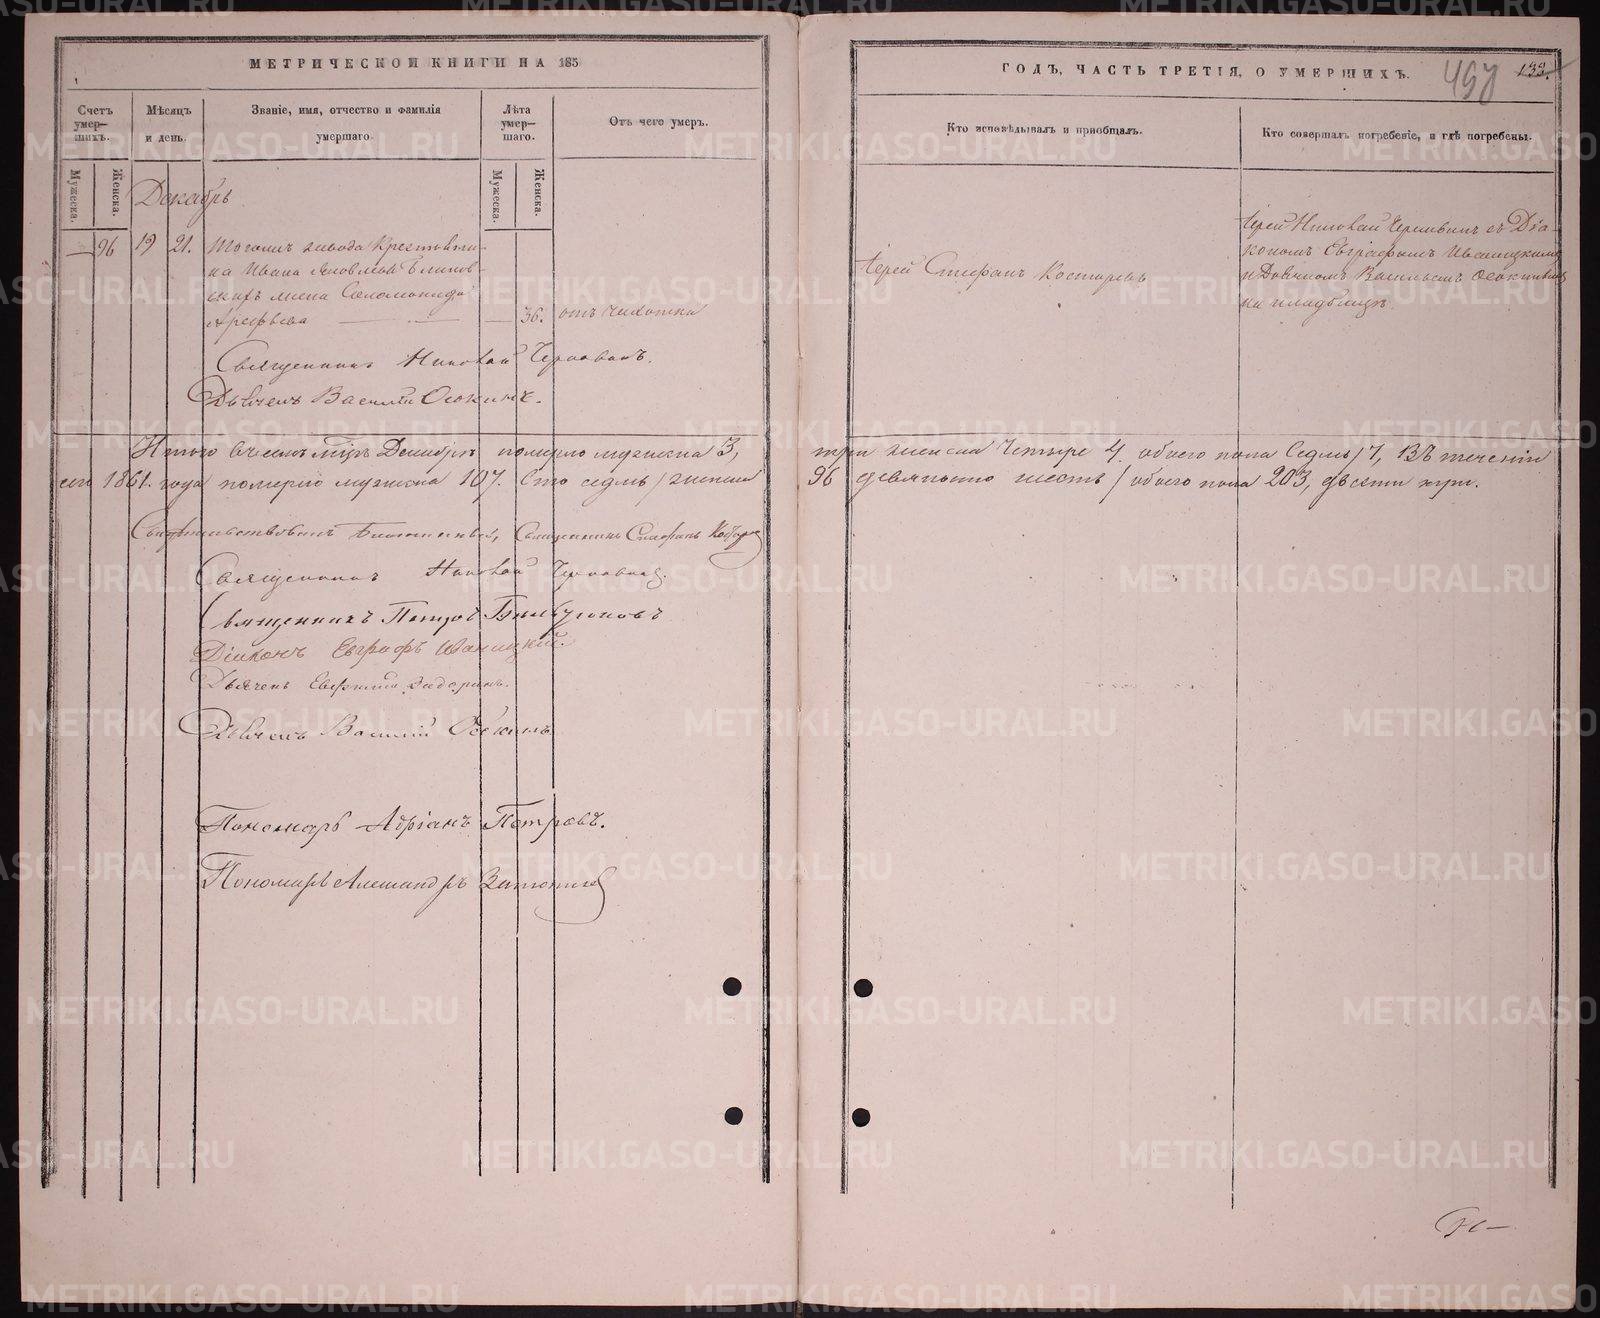 МЕТРИЧЕСКОЙ КНИГИ НА 185
ГОДЪ, ЧАСТЬ ТРЕТІЯ, О УМЕРШИХЪ.
133.
Счетъ умер-шихъ.
Мѣсяцъ и день.
Званіе, имя, отчество и фамилія умершаго.
Лѣта умер-шаго.
Отъ чего умеръ.
Кто исповѣдывалъ и пріобщалъ.
Кто совершалъ погребеніе, и гдѣ погребены.
Мужеска.
Женска.
Мужеска.
Женска.
Декабрь
— 96 19 21. Тогожъ завода Крестьяни-
на Ивана Яковлева Блинов-
скихъ жена Соломонида
Арефьева — — 36. отъ чахотки
Іерей Стефанъ Костаревъ
Іерей Николай Черпавинъ съ Діа-
кономъ Евграфомъ Иваницкимъ
и Дьячкомъ Василіемъ Осокинымъ
на кладбищѣ.
Священникъ Николай
Дьячекъ Василій Осокинъ.
Итого въ семъ м҃цѣ Декабрѣ померло мужеска 3,
три женска Четыре 4. обоего пола Седмь / 7, Въ теченіи
сего 1861. года померло мужеска 107. Сто седмь / женска
96 девяносто шесть / обоего пола 203, двѣсти три.
Священникъ Стефанъ
Священникъ Николай
Священникъ Петръ
Діаконъ Евграфъ Иваницкій.
Дьячекъ Евгеній
Дьячекъ Василій Осокинъ
Пономарь Адріанъ Петровъ.
Пономарь Александръ
METRIKI.GASO-URAL.RU